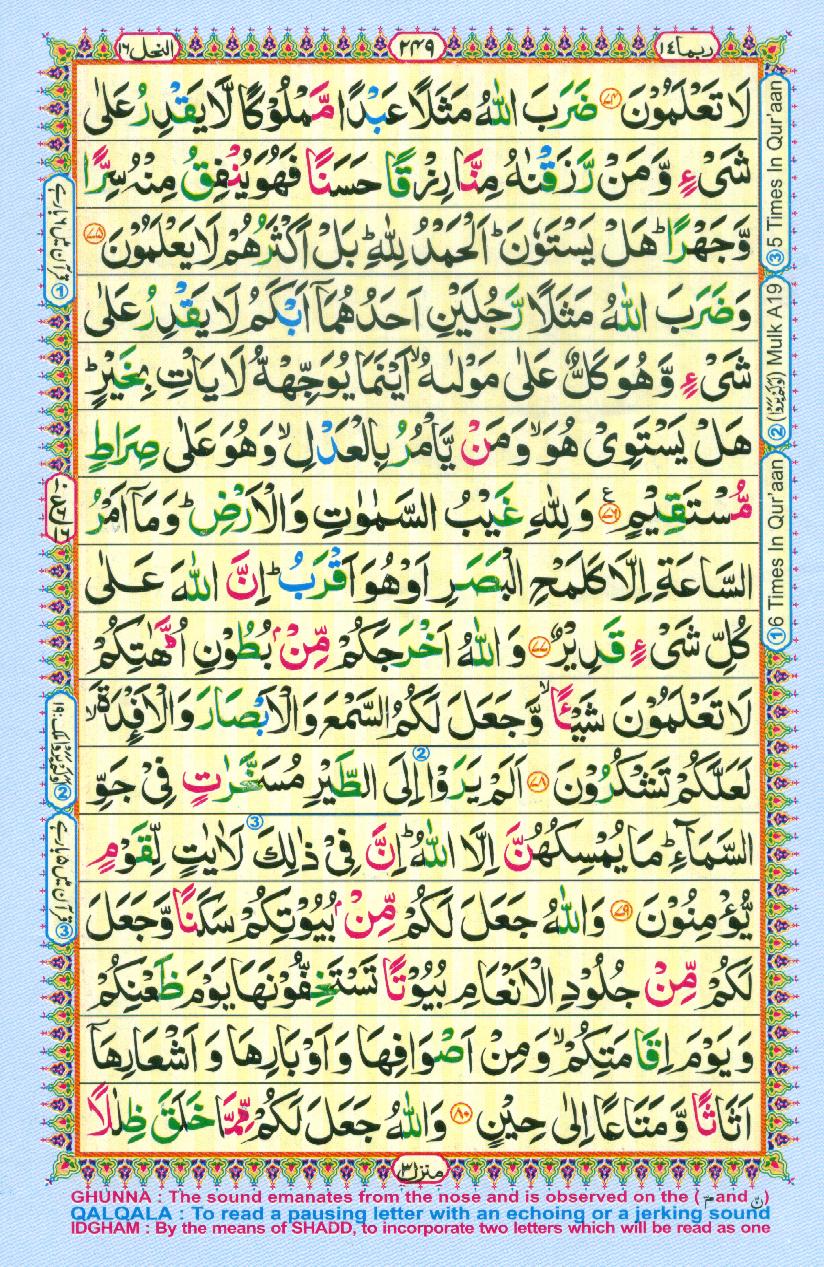 ربما ١٤
٢٤٩
النحل ١٦
لَا تَعْلَمُوْنَ ﴿٧٤﴾ ضَرَبَ اللّٰهُ مَثَلًا عَبْدًا مَّمْلُوْكًا لَّا يَقْدِرُ عَلٰى
شَىْءٍ وَّمَنْ رَّزَقْنٰهُ مِنَّا رِزْقًا حَسَنًا فَهُوَ يُنْفِقُ مِنْهُ سِرًّا
وَّجَهْرًا ؕ هَلْ يَسْتَوٗنَ ؕ اَلْحَمْدُ لِلّٰهِ ؕ بَلْ اَكْثَرُهُمْ لَا يَعْلَمُوْنَ ﴿٧٥﴾
وَضَرَبَ اللّٰهُ مَثَلًا رَّجُلَيْنِ اَحَدُهُمَاۤ اَبْكَمُ لَا يَقْدِرُ عَلٰى
شَىْءٍ وَّهُوَ كَلٌّ عَلٰى مَوْلٰىهُ ۙ اَيْنَمَا يُوَجِّهْهُّ لَا يَاْتِ بِخَيْرٍ ؕ
هَلْ يَسْتَوِىْ هُوَ ۙ وَمَنْ يَّاْمُرُ بِالْعَدْلِ ۙ وَهُوَ عَلٰى صِرَاطٍ
مُّسْتَقِيْمٍ ﴿٧٦﴾ ع وَلِلّٰهِ غَيْبُ السَّمٰوٰتِ وَالْاَرْضِ ؕ وَمَاۤ اَمْرُ
السَّاعَةِ اِلَّا كَلَمْحِ الْبَصَرِ اَوْ هُوَ اَقْرَبُ ؕ اِنَّ اللّٰهَ عَلٰى
كُلِّ شَىْءٍ قَدِيْرٌ ﴿٧٧﴾ وَاللّٰهُ اَخْرَجَكُمْ مِّنْۢ بُطُوْنِ اُمَّهٰتِكُمْ
لَا تَعْلَمُوْنَ شَيْـًٔا ۙ وَّجَعَلَ لَكُمُ السَّمْعَ وَالْاَبْصَارَ وَالْاَفْـِٕدَةَ ۙ
لَعَلَّكُمْ تَشْكُرُوْنَ ﴿٧٨﴾ اَلَمْ يَرَوْا ② اِلَى الطَّيْرِ مُسَخَّرٰتٍ فِىْ جَوِّ
السَّمَآءِ ؕ مَا يُمْسِكُهُنَّ اِلَّا اللّٰهُ ؕ اِنَّ فِىْ ذٰلِكَ ③ لَاٰيٰتٍ لِّقَوْمٍ
يُّؤْمِنُوْنَ ﴿٧٩﴾ وَاللّٰهُ جَعَلَ لَكُمْ مِّنْۢ بُيُوْتِكُمْ سَكَنًا وَّجَعَلَ
لَكُمْ مِّنْ جُلُوْدِ الْاَنْعَامِ بُيُوْتًا تَسْتَخِفُّوْنَهَا يَوْمَ ظَعْنِكُمْ
وَيَوْمَ اِقَامَتِكُمْ ۙ وَمِنْ اَصْوَافِهَا وَاَوْبَارِهَا وَاَشْعَارِهَاۤ
اَثَاثًا وَّمَتَاعًا اِلٰى حِيْنٍ ﴿٨٠﴾ وَاللّٰهُ جَعَلَ لَكُمْ مِّمَّا خَلَقَ ظِلٰلًا
منزل ٣
① 6 Times In Qur'aan
② Mulk A19
③ 5 Times In Qur'aan
① قرآن میں ٦ بار ہے
②
③ قرآن میں ٥ بار ہے
GHUNNA : The sound emanates from the nose and is observed on the ( مّ and نّ )
QALQALA : To read a pausing letter with an echoing or a jerking sound
IDGHAM : By the means of SHADD, to incorporate two letters which will be read as one